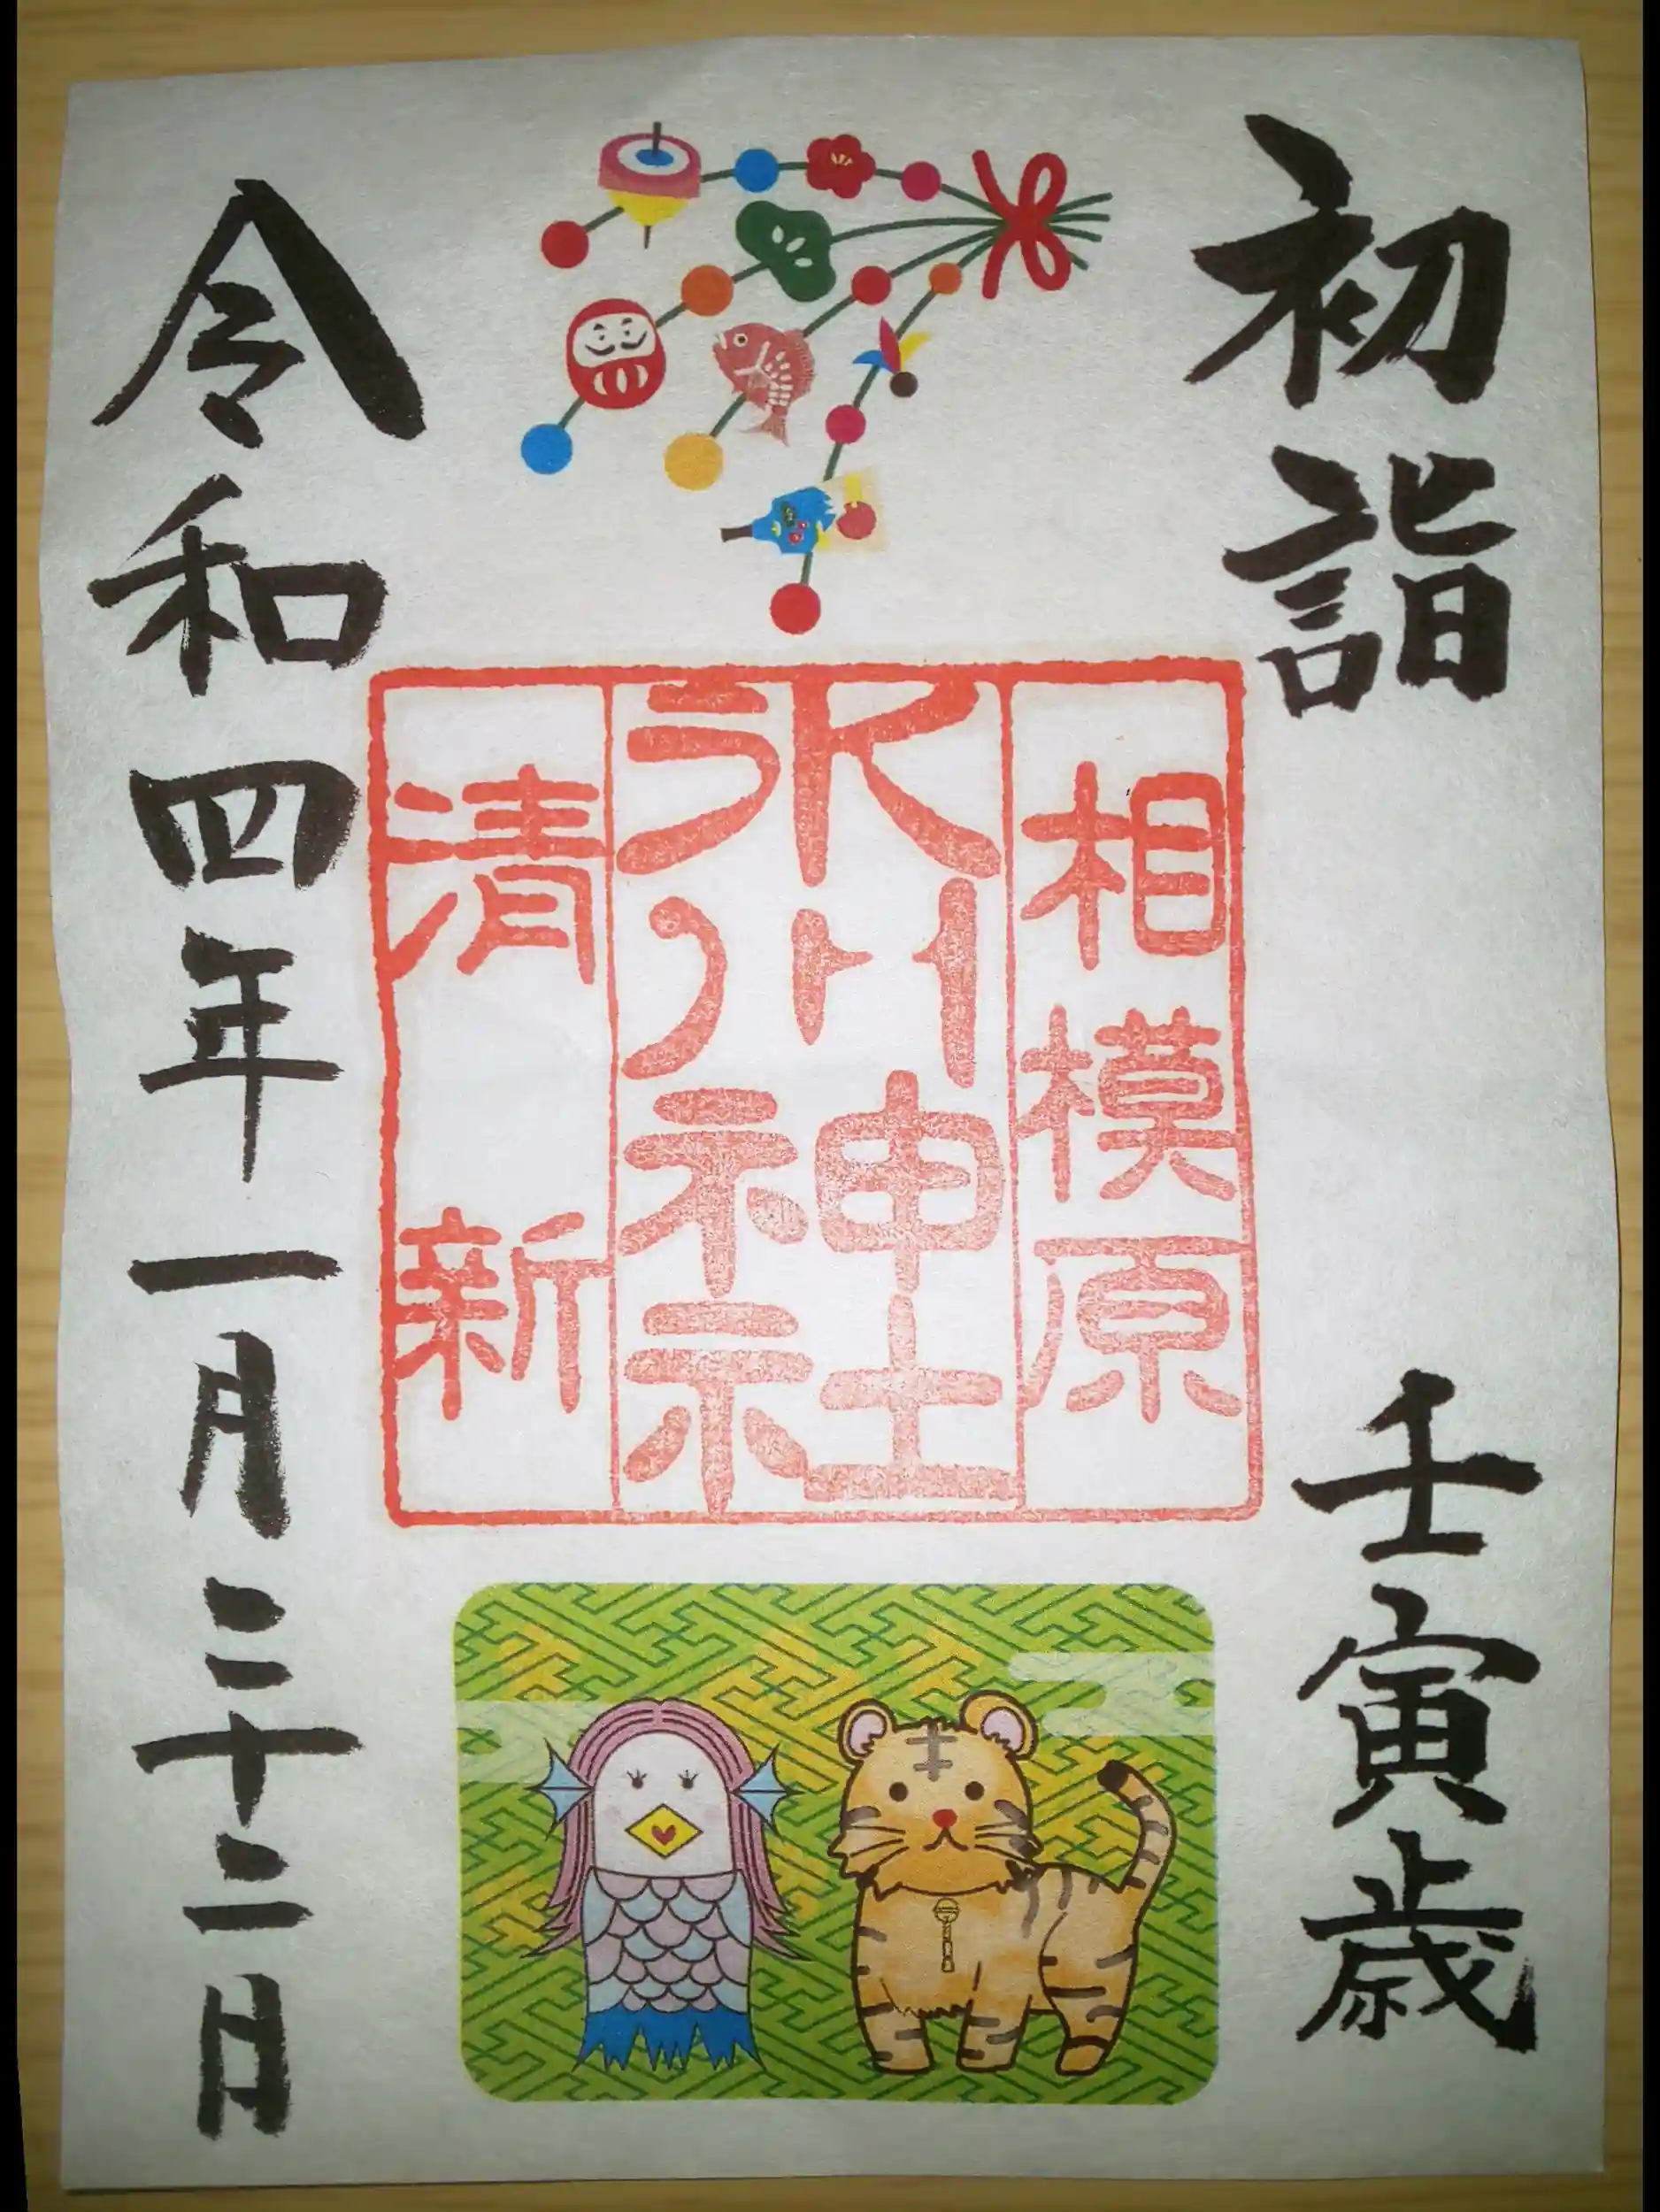 初詣
壬寅歳
相模原
氷川神社
清新
令和四年一月二十二日